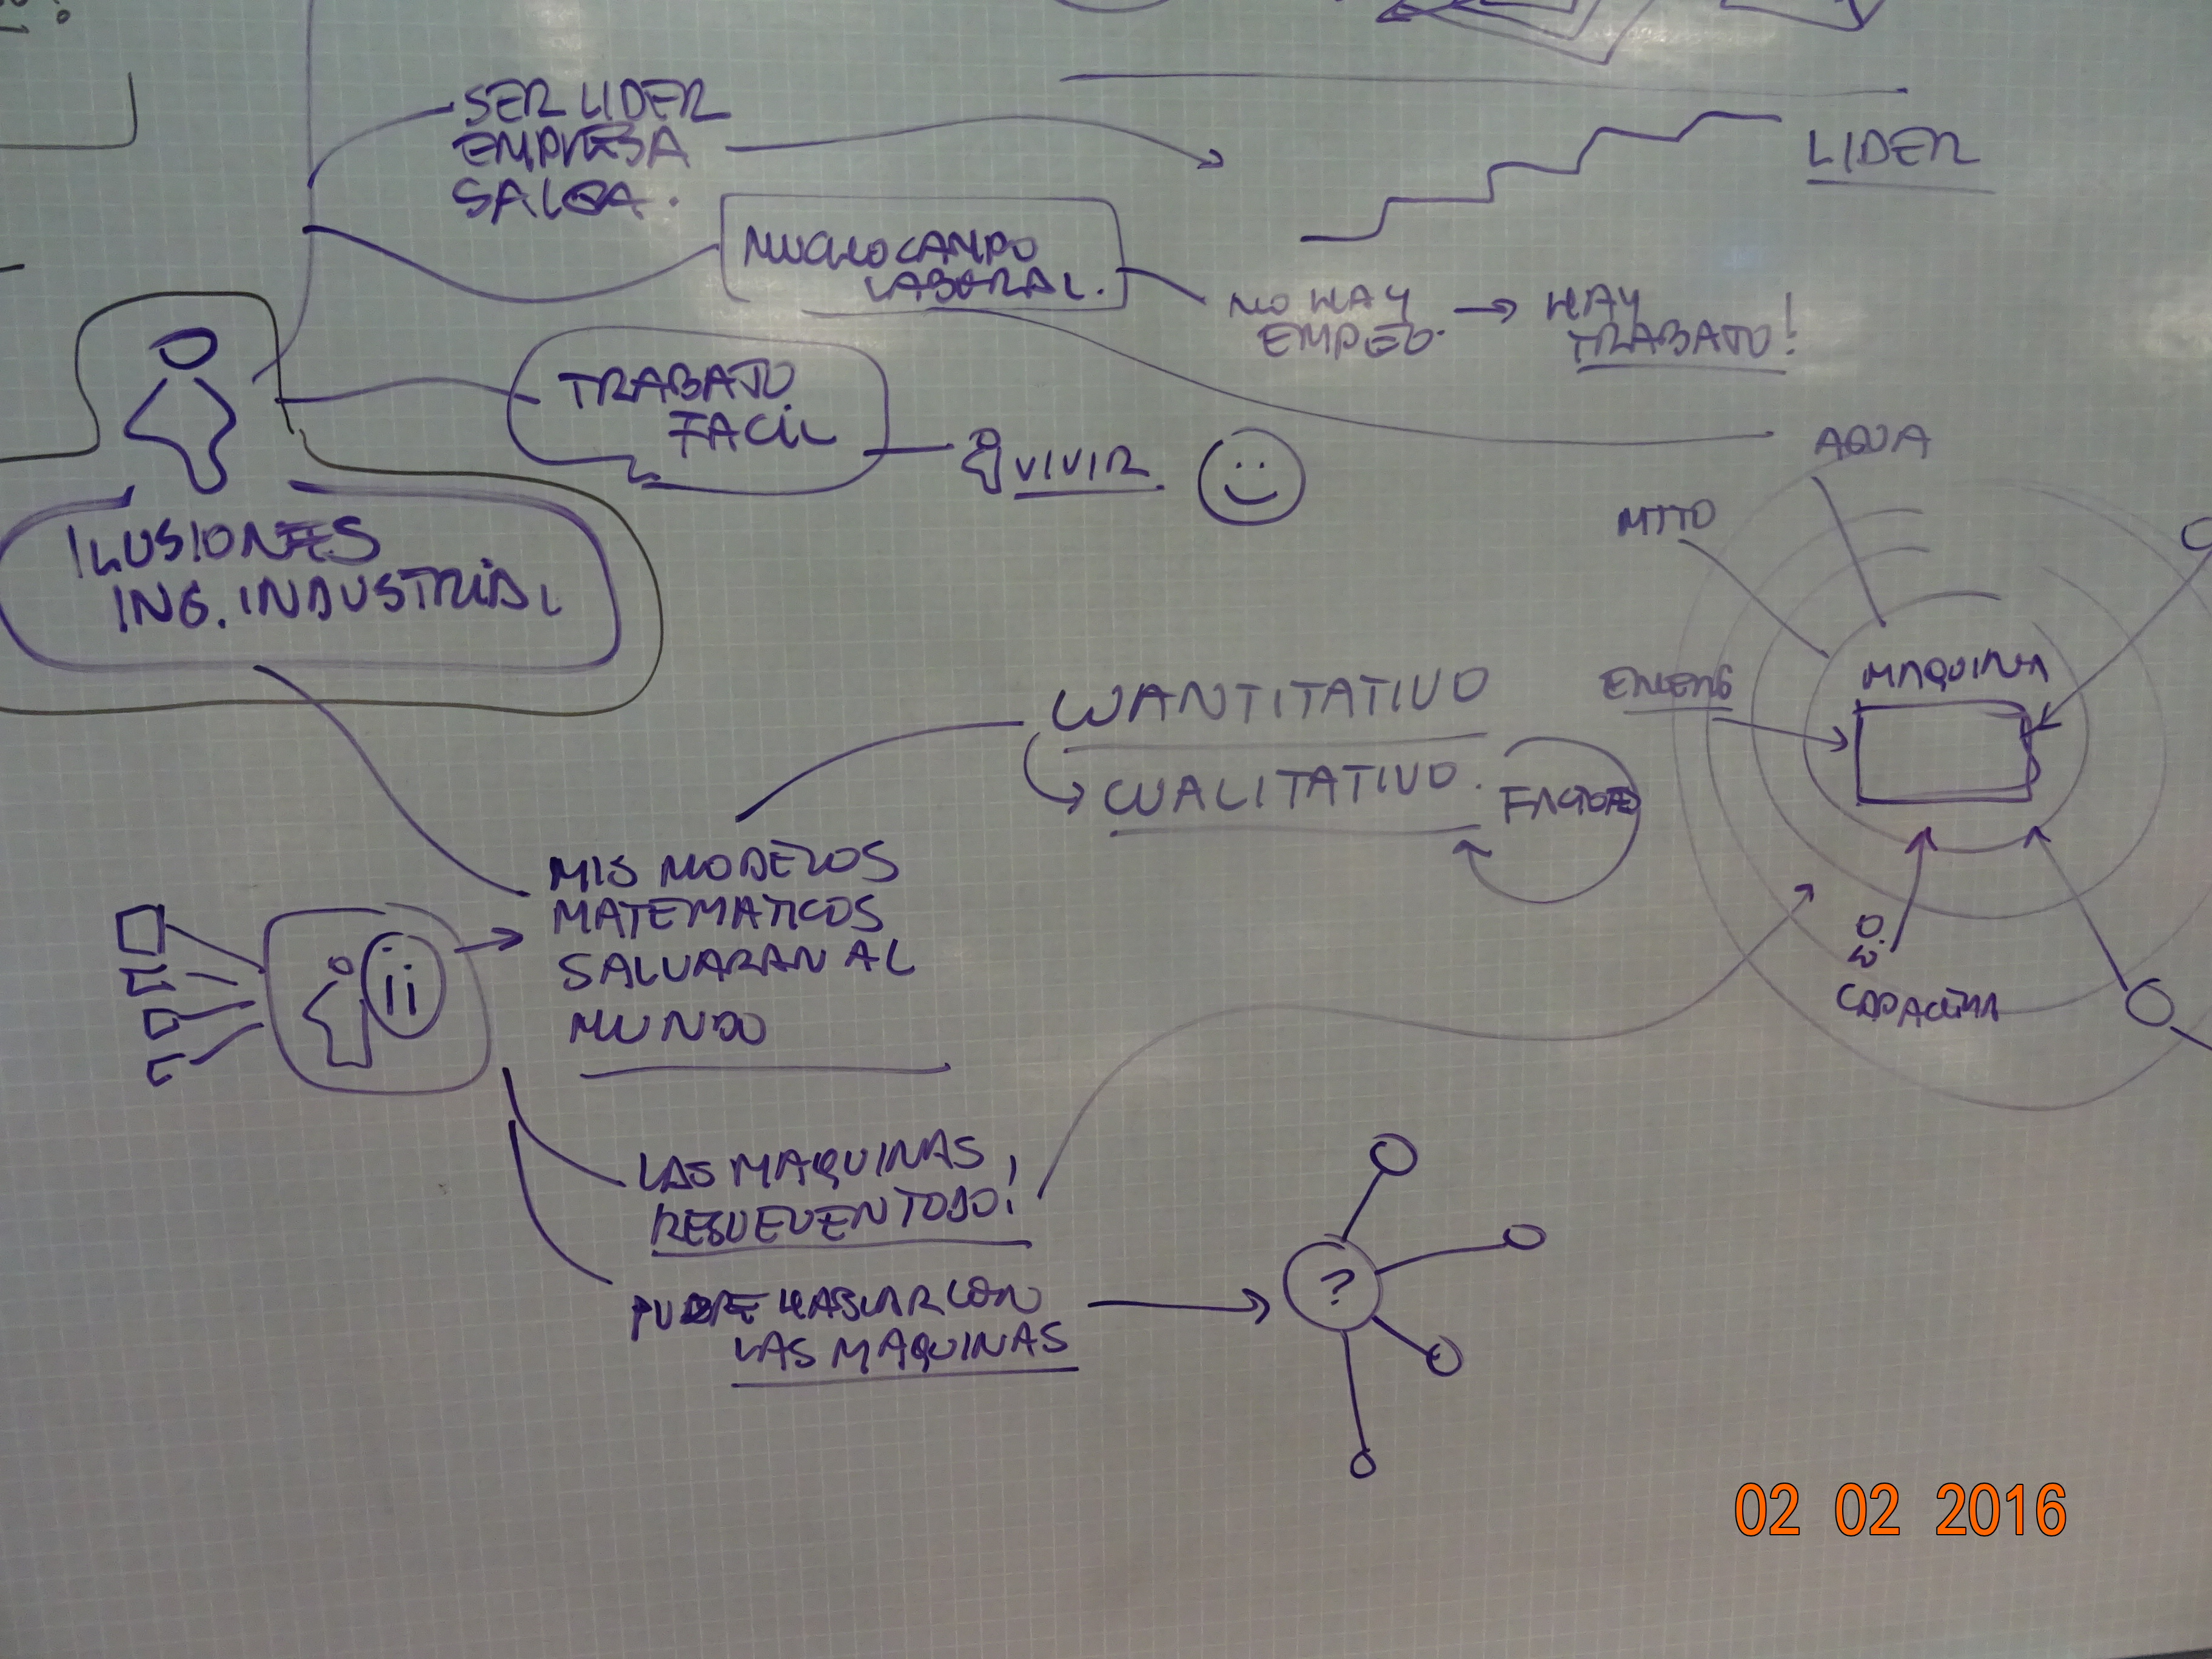 SER LIDER
EMPRESA
LIDER
MUCHO CAMPO
LABORAL.
NO HAY
EMPLEO.
HAY
TRABAJO!
TRABAJO
FACIL
VIVIR
AQUA
MTTO
ILUSIONES
ING. INDUSTRIAL
MAQUINA
CUANTITATIVO
CUALITATIVO.
MIS MODELOS
MATEMATICOS
SALVARAN AL
MUNDO
ii
LAS MAQUINAS
RESUELVEN TODO!
PUEDE HABLAR CON
LAS MAQUINAS
?
02 02 2016